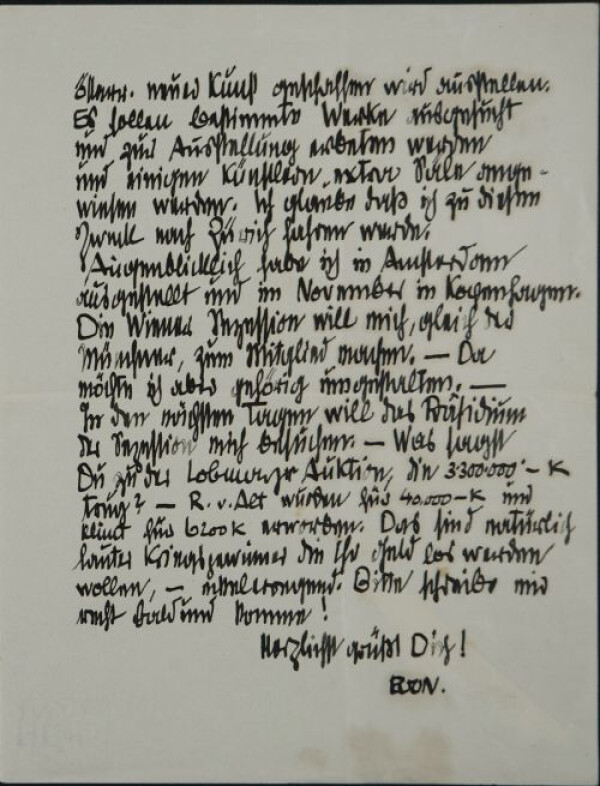 österr. neuer Kunst geschaffen wird ausstellen.
Es sollen bestimmte Werke ausgesucht
und zur Ausstellung erbeten werden
und einigen Künstlern extra Säle ange-
wiesen werden. Ich glaube daß ich zu diesem
Zweck nach Zürich fahren werde.
Augenblicklich habe ich in Amsterdam
ausgestellt und im November in Kopenhagen.
Die Wiener Sezession will mich, gleich der
Münchner, zum Mitglied machen. — Da
möchte ich aber gehörig umgestalten. —
In den nächsten Tagen will das Präsidium
der Sezession mich besuchen. — Was sagst
Du zu der Lobmayr Auktion, die 3300.000 – K
trug? — R. v. Alt wurden für 40.000 – K und
Klimt für 6200 K erworben. Das sind natürlich
lauter Kriegsgewinner die Ihr Geld los werden
wollen, – ekelerregend. Bitte schreibe mir
recht bald und komme!
Herzlichst grüßt Dich!
EGON.